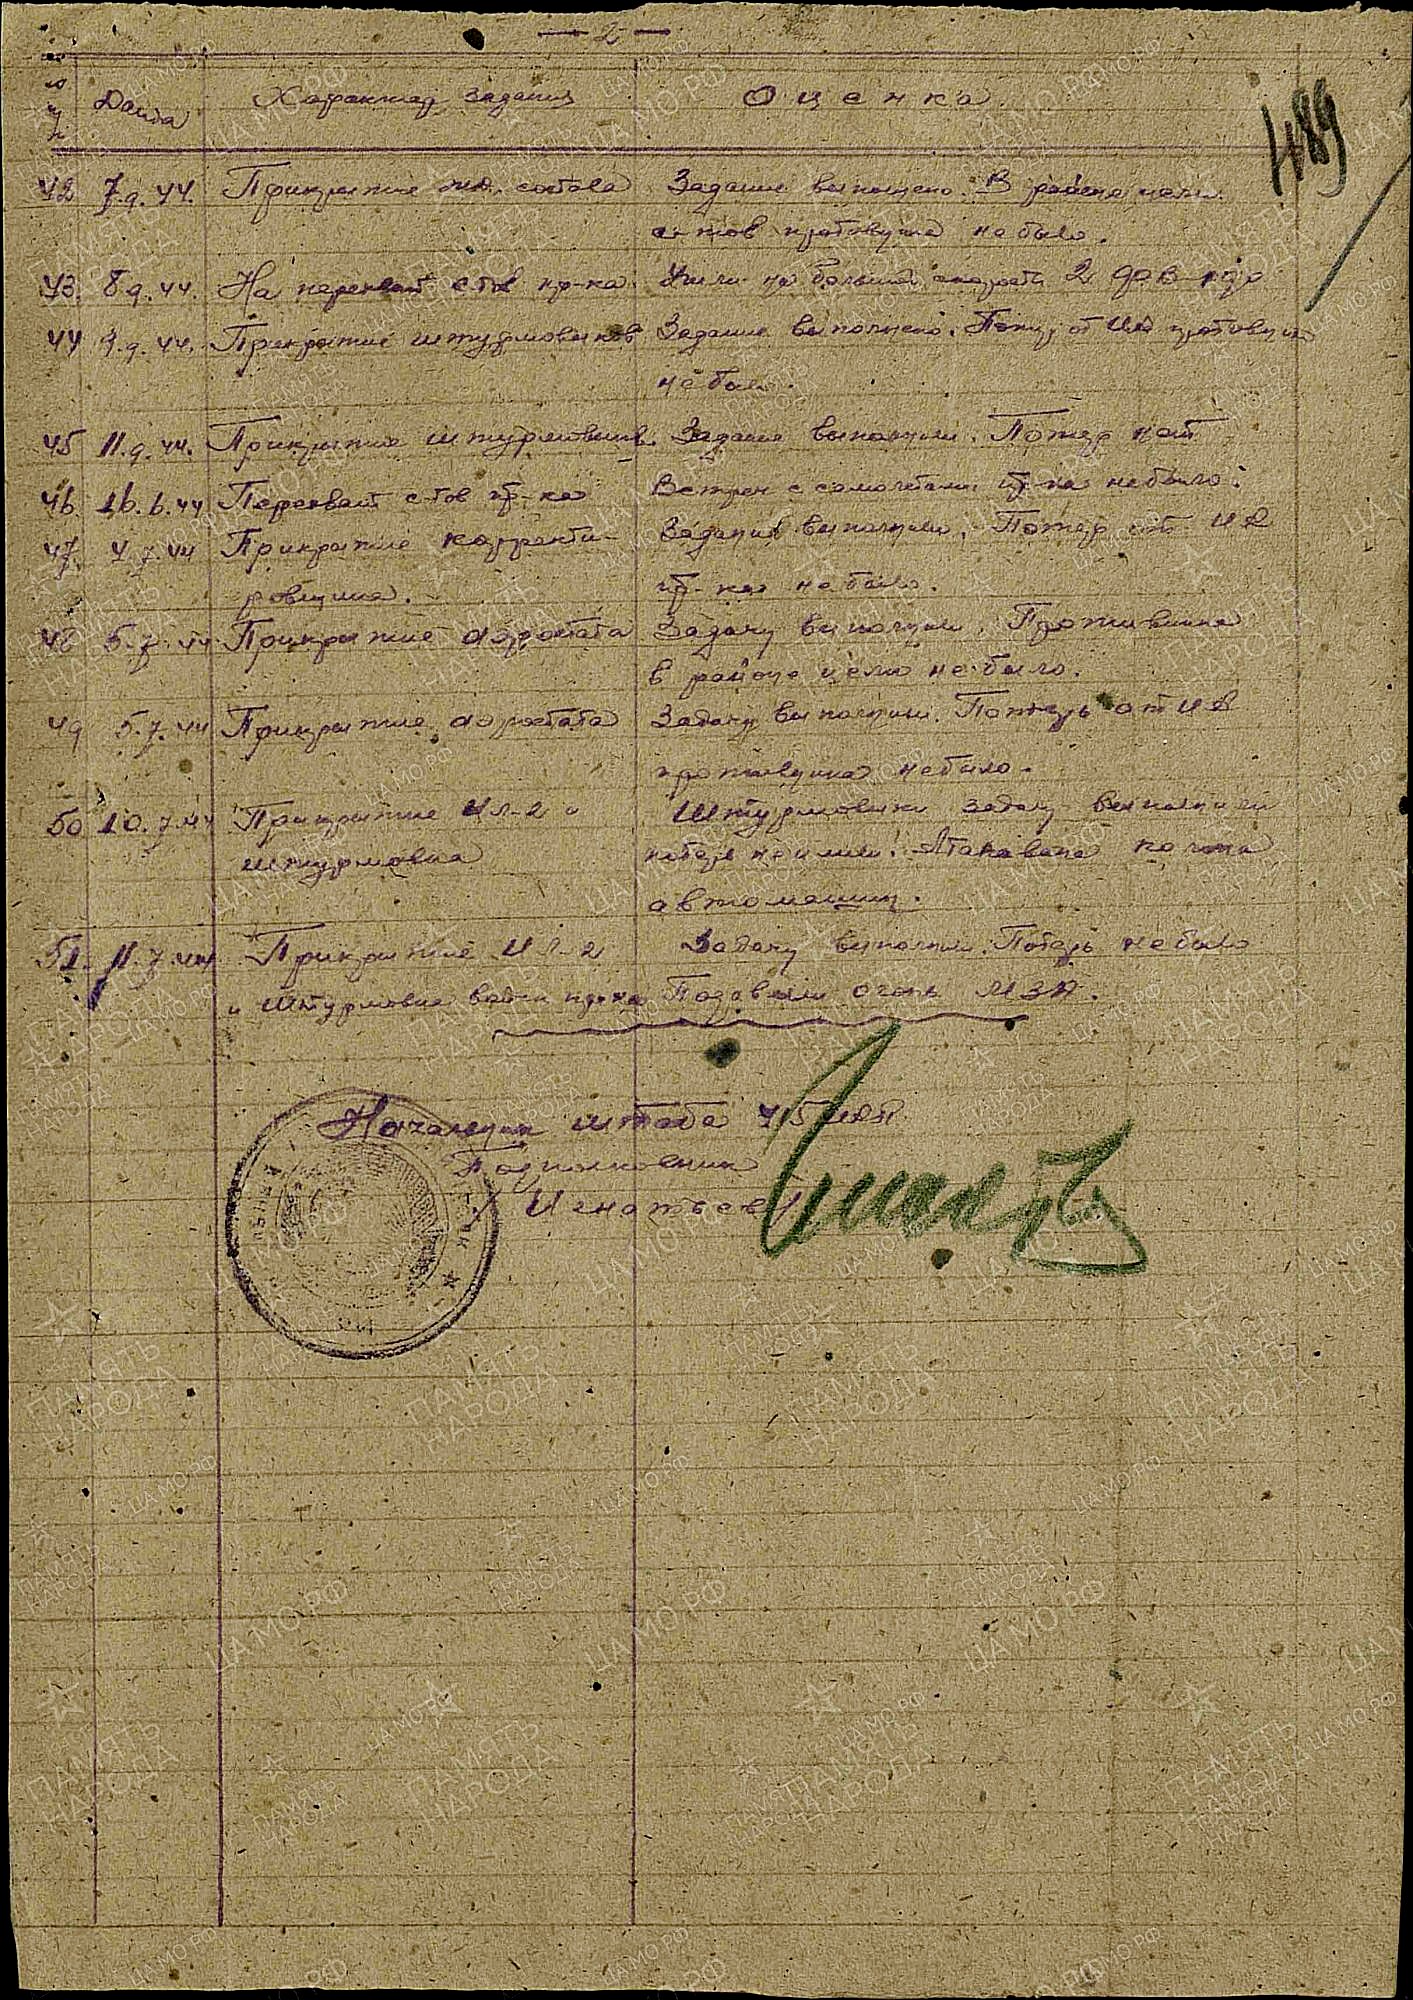 — 2 —
489
Дата Характер задания Оценка
42 7.9.44. Прикрытие жд. состава Задание выполнено. В районе цели
с-тов противника не было.
43. 8.9.44. На перехват с-тов пр-ка. Ушли на большой скорости 2
44 9.9.44. Прикрытие штурмовиков Задание выполнено. Потерь от ИА противника
не было.
45 11.9.44. Прикрытие штурмовиков. Задание выполнили. Потерь нет
46 16.6.44 Перехват с-тов пр-ка Встреч с самолетами пр-ка не было.
47. 4.7.44 Прикрытие корректи- Задание выполнили. Потерь от ИА
ровщика. пр-ка не было.
48 5.7.44 Прикрытие аэростата Задачу выполнили. Противника
в районе цели не было.
49 5.7.44 Прикрытие аэростата Задачу выполнили. Потерь от ИА
противника не было.
50 10.7.44 Прикрытие Ил-2 и Штурмовики задачу выполнили
штурмовка потерь не имели. Атакована колона
автомашин.
51. 11.7.44. Прикрытие Ил-2 Задачу выполнили. Потерь не было
и штурмовка войск пр-ка Подавили огонь МЗА.
Начальник штаба 715 ИАП
Подполковник
/ Игнатьев /